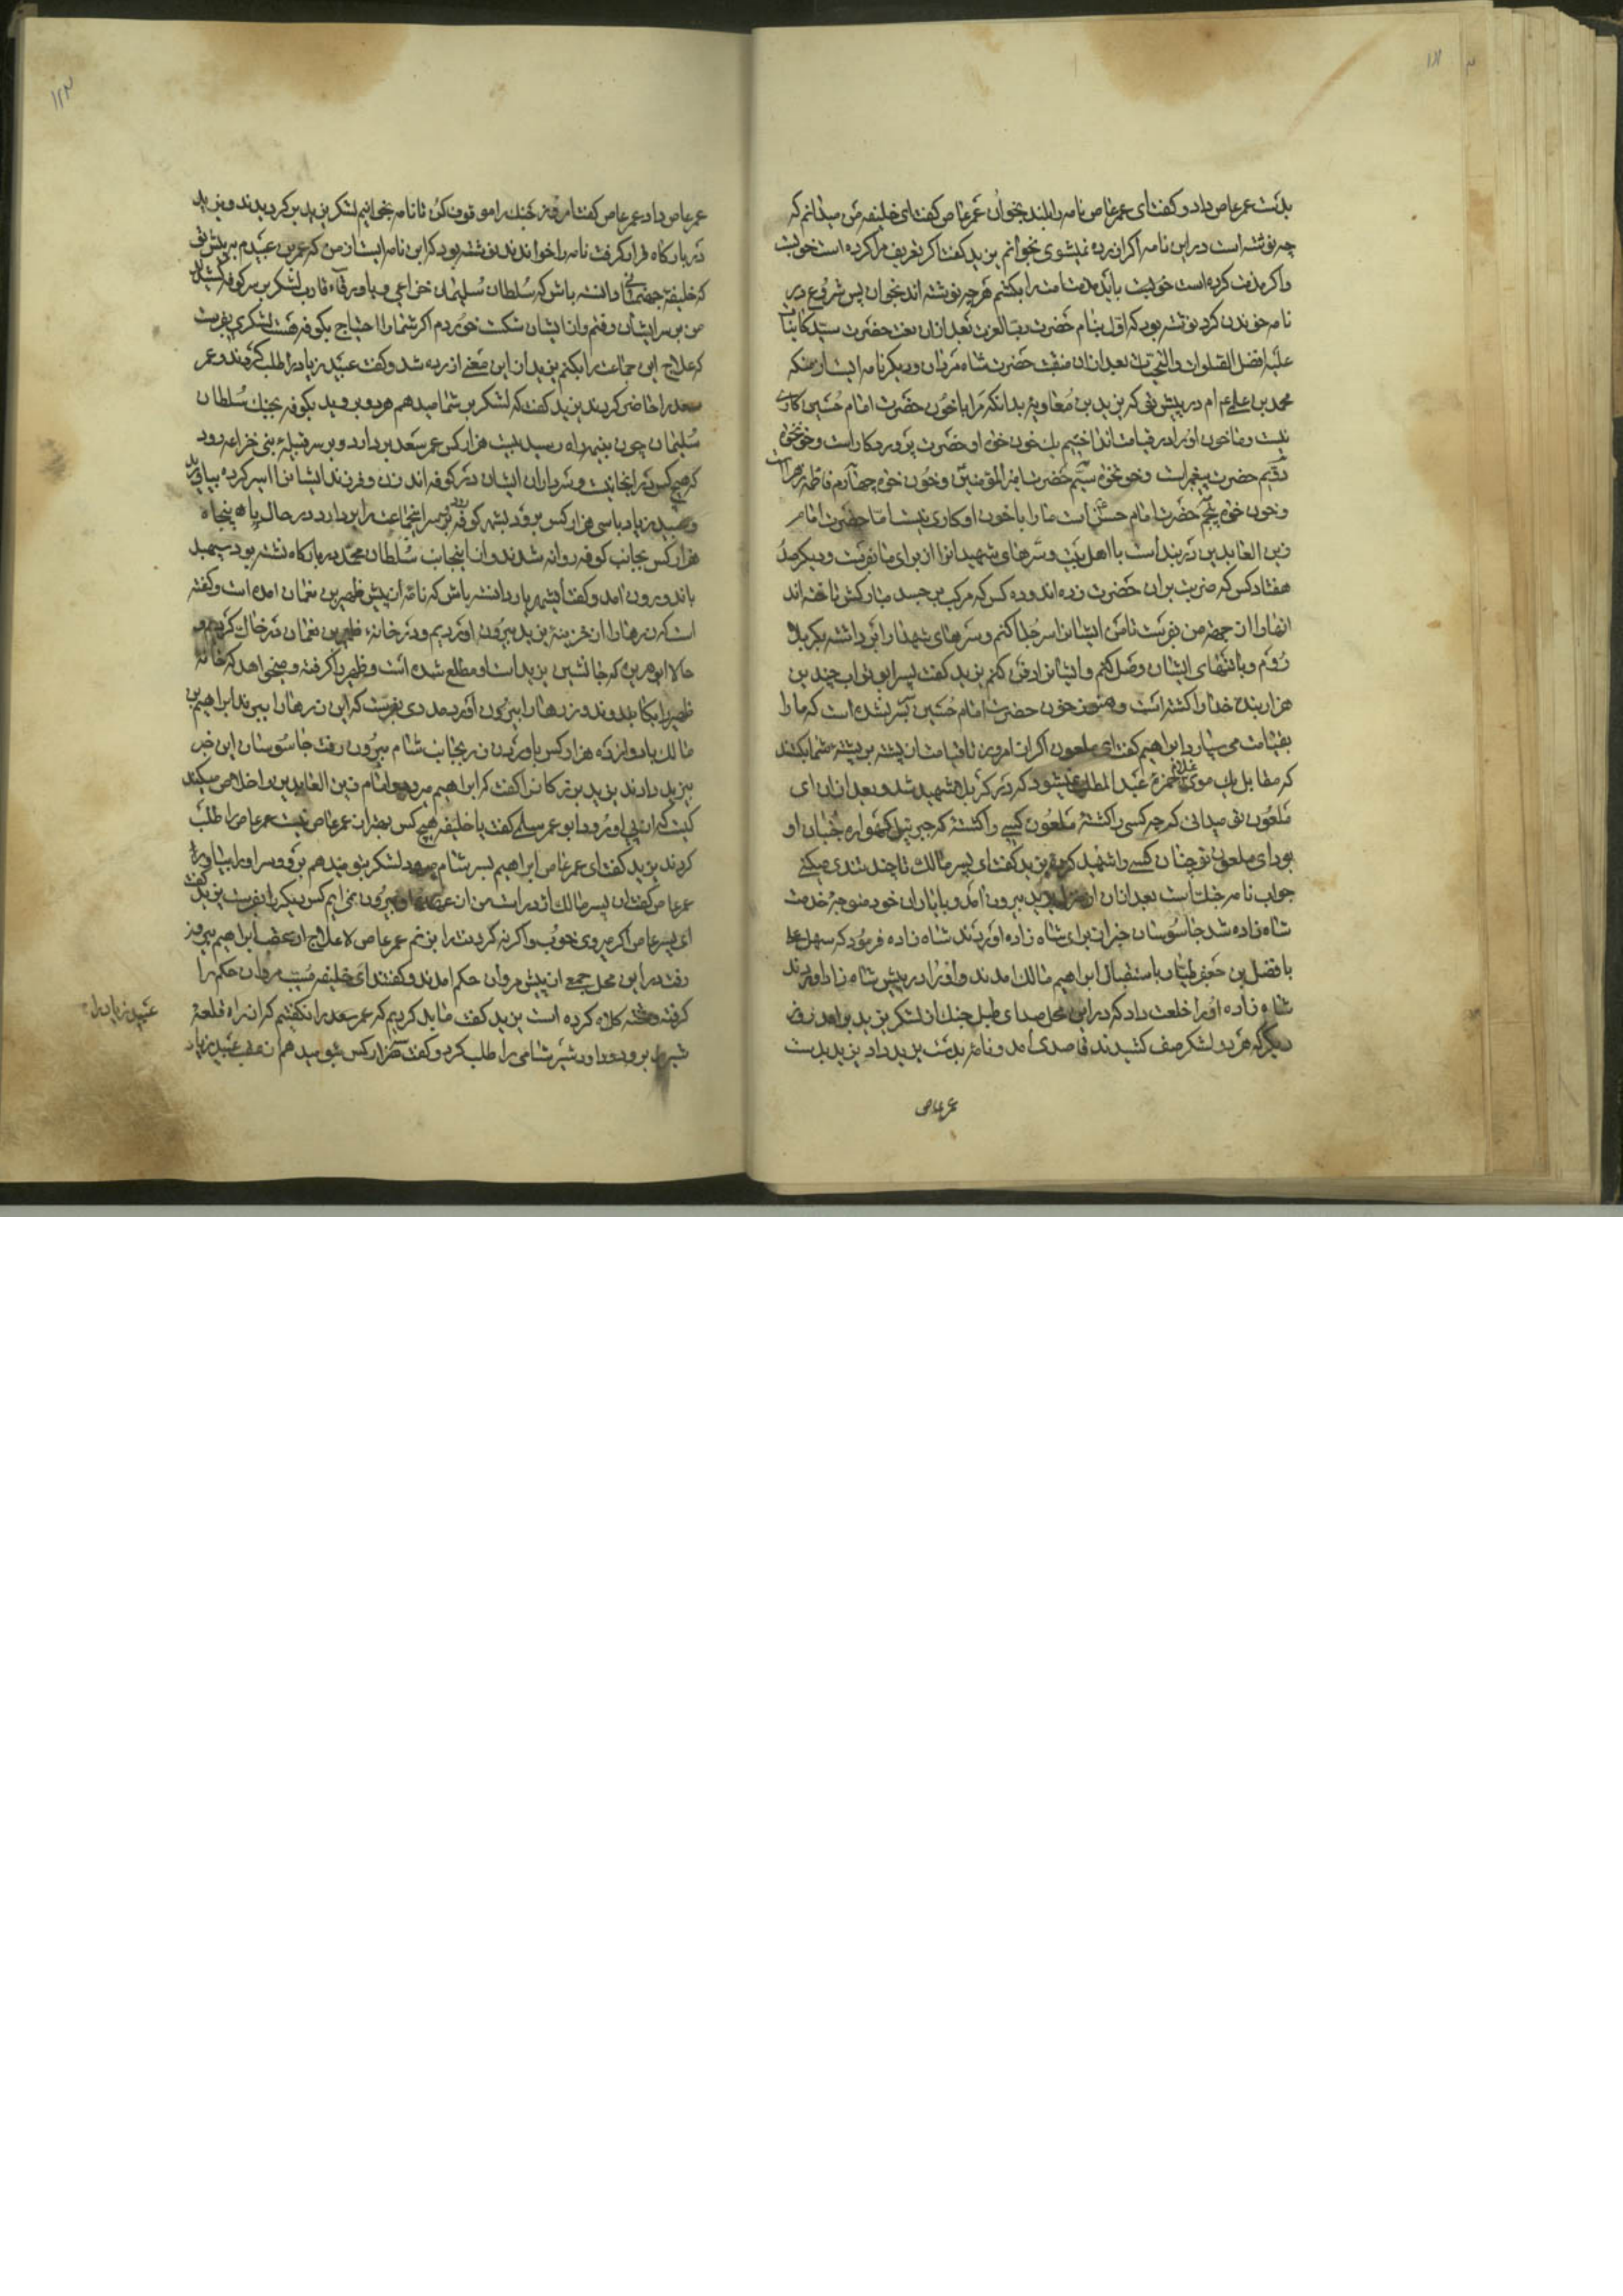 بدست عمرعاص داد و کفت ای عمرعاص نامه را بلند بخوان عمرعاص کفت ای خلیفه من میدانم که
چه نوشته است در این نامه اکر ازرده نمیشوی بخوانم یزید کفت اکر تعریف مرا کرده است خوبست
واکر مذمت کرده است خوبست هرچه نوشته اند بخوان پس شروع در
نامه خوندن کرد نوشته بود که اول بنام حضرت رب العزت بعد ازان نعت حضرت سید کاینات
علیه افضل الصلوات والتحیات بعد ازان منقبت حضرت شاه مردان ودیکر نامه ایست از منکه
محمد بن علی ام در پیش تو که یزید بن معاویه بدانکه مرا با خون حضرت امام حسین کاری
نیست وما خون او را در قیامت یک خون خواه او حضرت پروردکار است وخونخواه
دویم حضرت پیغمبر است وخونخواه سیم حضرت امیر المؤمنین وخون خواه چهارم فاطمه زهرا است
وخون خواه پنجم حضرت امام حسن است ما را با خون او کاری نیست اما حضرت امام
زین العابدین در بند است با اهل بیت وسرهای شهیدانرا از برای ما بفرست ودیکر صد
هفتاد کس که ضربت بران حضرت زده اند وده کس که مرکب بر جسد مبارکش تاخته اند
انها را از جهة من بفرست تا من ایشانرا سر جدا کنم وسرهای شهدا را برداشته بکربلا
روم وبا تنهای ایشان وصل کنم وایشانرا دفن کنم یزید کفت پسر ابوتراب چندین
هزار بنده خدا را کشته است وهنوز خون حضرت امام حسین بسر نشده است که ما را
بقیامت می سپارد ابراهیم کفت ای ملعون اکر از امروز تا قیامت از پشته بر پشته شما بکشند
که مقابل یک موی غلام حمزة عبد المطلب نمیشود که در کربلا شهید شد وبعد ازان ای
ملعون نمی میدانی که چه کسی را کشتهٔ ملعون کسی را کشتهٔ که جبرئیل کهواره جنبان او
بود ای ملعون تو چنان کسی را شهید کردی یزید کفت ای پسر مالک تا چند تندی میکنی
جواب نامه جنک است بعد ازان از منزل یزید بیرون آمد وبا یاران خود متوجه خدمت
شاه زاده شد جاسوسان خبر از برای شاه زاده اوردند شاه زاده فرمود که سهل علی
با فضل بن جعفر طیار باستقبال ابراهیم مالک امدند واو را در پیش شاه زاده اوردند
شاه زاده او را خلعت داد که در این محل صدای طبل جنک از لشکر یزید برامد روز
دیکر که هر دو لشکر صف کشیدند قاصدی امد ونامه بدست یزید داد یزید بدست
عمرعاص
عمرعاص داد عمرعاص کفت امروز جنک را موقوف کن تا نامه بخوانیم لشکر یزید برکردیدند ویزید
در بارکاه قرار کرفت نامه را خواندند نوشته بود که این نامه ایست از من که عمر بن عبیدم به پیش تو
که خلیفهٔ جهنمانی دانسته باش که سلطان سلیمان خزاعی لشکر بر سر کوفه کشیدند
من بر سر ایشان رفتم واز ایشان شکست خوردم اکر شما را احتیاج بکوفه هست لشکری بفرست
که علاج این جماعت را بکنم یزید از این معنی ازرده شد وکفت عبید زیاد را طلب کردند وعمر
سعد را حاضر کردند یزید کفت که لشکر بشما میدهم هر دو بروید بکوفه بجنک سلطان
سلیمان چون بنیمه راه رسید بیست هزار کس عمر سعد بردارد وبر سر قبیلهٔ بنی خزاعه رود
که هیچ کس در انجا نیست وسرداران ایشان در کوفه اند زن وفرزند ایشانرا اسیر کرده بیاورید
وعبید زیاد با سی هزار کس برود بشهر کوفه رود بر سر انجماعت در حال پنجاه
هزار کس بجانب کوفه روانه شدند واز اینجانب سلطان محمد در بارکاه نشسته بود
باند ورون امد وکفت ایشهریار دانسته باش که نامه از پیش ظهیر بن نعمان امده است وکفته
است که زرها را از خزینهٔ یزید بیرون اوردیم ودر خانهٔ ظهیر بن نعمان در خاک کردیم و
حالا که جانشین یزید است او مطلع شده است وظهیر را کرفته ومیخواهد که خانه
ظهیر را بکاود وزرها را بیرون آورد مددی بفرست که این زرها را ببرند ابراهیم بن
مالک با دوازده هزار کس باوردن زر بجانب شام بیرون رفت جاسوسان این خبر
بیزید دادند یزید کفت که ابراهیم میرود وامام زین العابدین را خلاص میکند
کیست که از پی او رود ابو عمر سلمی کفت یا خلیفه هیچ کس بهتر از عمرعاص نیست عمرعاص را طلب
کردند یزید کفت ای عمرعاص ابراهیم بسر شام میرود لشکر بتو میدهم برو وسر او را بیاور
عمرعاص کفت ان پسر مالک اژدر است من از عهدهٔ او بیرون نمی ایم کس دیکر را بفرست یزید کفت
ای پسر عاص اکر میروی خوب واکر نه کردنت را بزنم عمرعاص لاعلاج از عقب ابراهیم بیرون
رفت در این محل جمعی از پیش مروان حکم امدند وکفتند ای خلیفه مسیب مروان حکم را
کرفته وتخته کلاه کرده است یزید کفت ما بد کردیم که عمر سعد را نکفتیم که از راه قلعهٔ
برود وداود شیر شامی را طلب کرد وکفت هزار کس بتو میدهم از عقب عبید زیاد
عبید زیاد را